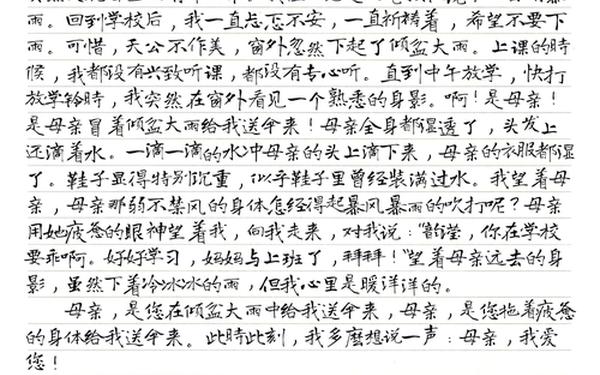 雨。回到学校后，我一直忐忑不安，一直祈祷着，希望不要下
雨。可惜，天公不作美，窗外忽然下起了倾盆大雨。上课的時
候，我都没有兴致听课，都没有专心听。直到中午放学，快打
放学铃時，我突然在窗外看见一个熟悉的身影。啊！是母亲！
是母亲冒着倾盆大雨给我送伞来！母亲全身都湿透了，头发上
还滴着水。一滴一滴的水冲母亲的头上滴下来，母亲的衣服都湿
了。鞋子显得特别沉重，似乎鞋子里曾经装满过水。我望着母
亲，母亲那弱不禁风的身体怎经得起暴风暴雨的吹打呢？母亲
用她疲惫的眼神望着我，向我走来，对我说：“莹，你在学校
要乖啊。好好学习，妈妈与上班了，拜拜！”望着母亲远去的身
影，虽然下着冷冰冰的雨，但我心里是暖洋洋的。
母亲，是您在倾盆大雨中给我送伞来，母亲，是您拖着疲惫
的身体给我送伞来。此時此刻，我多麽想说一声：母亲，我爱
您！